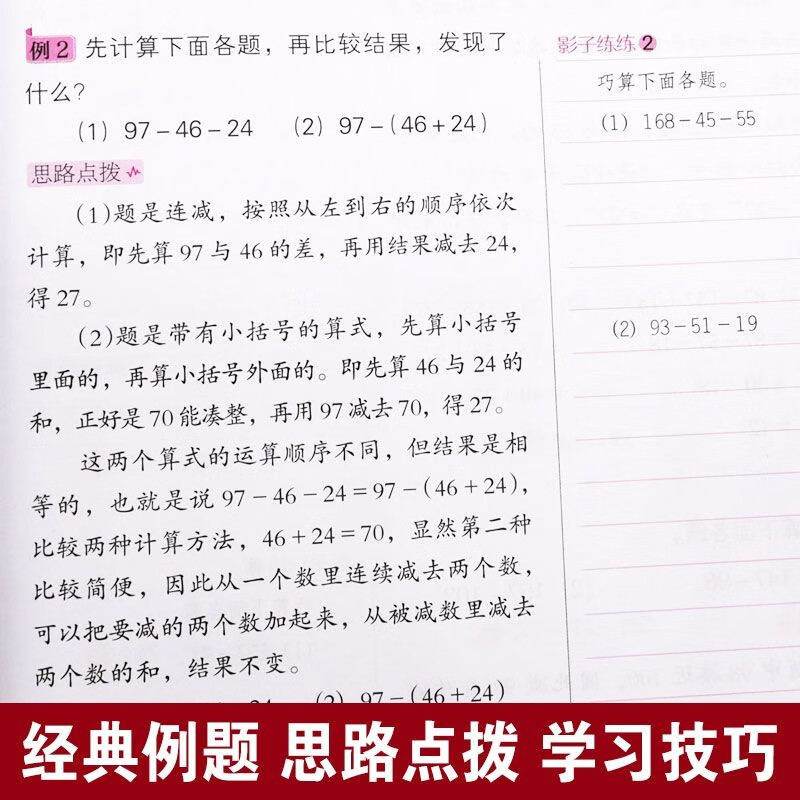 例2 先计算下面各题，再比较结果，发现了
什么？
(1) 97－46－24 (2) 97－(46＋24)
思路点拨
(1)题是连减，按照从左到右的顺序依次
计算，即先算 97 与 46 的差，再用结果减去 24，
得 27。
(2)题是带有小括号的算式，先算小括号
里面的，再算小括号外面的。即先算 46 与 24 的
和，正好是 70 能凑整，再用 97 减去 70，得 27。
这两个算式的运算顺序不同，但结果是相
等的，也就是说 97－46－24＝97－(46＋24)，
比较两种计算方法，46＋24＝70，显然第二种
比较简便，因此从一个数里连续减去两个数，
可以把要减的两个数加起来，从被减数里减去
两个数的和，结果不变。
(2) 97－(46＋24)
影子练练2
巧算下面各题。
(1) 168－45－55
(2) 93－51－19
经典例题 思路点拨 学习技巧